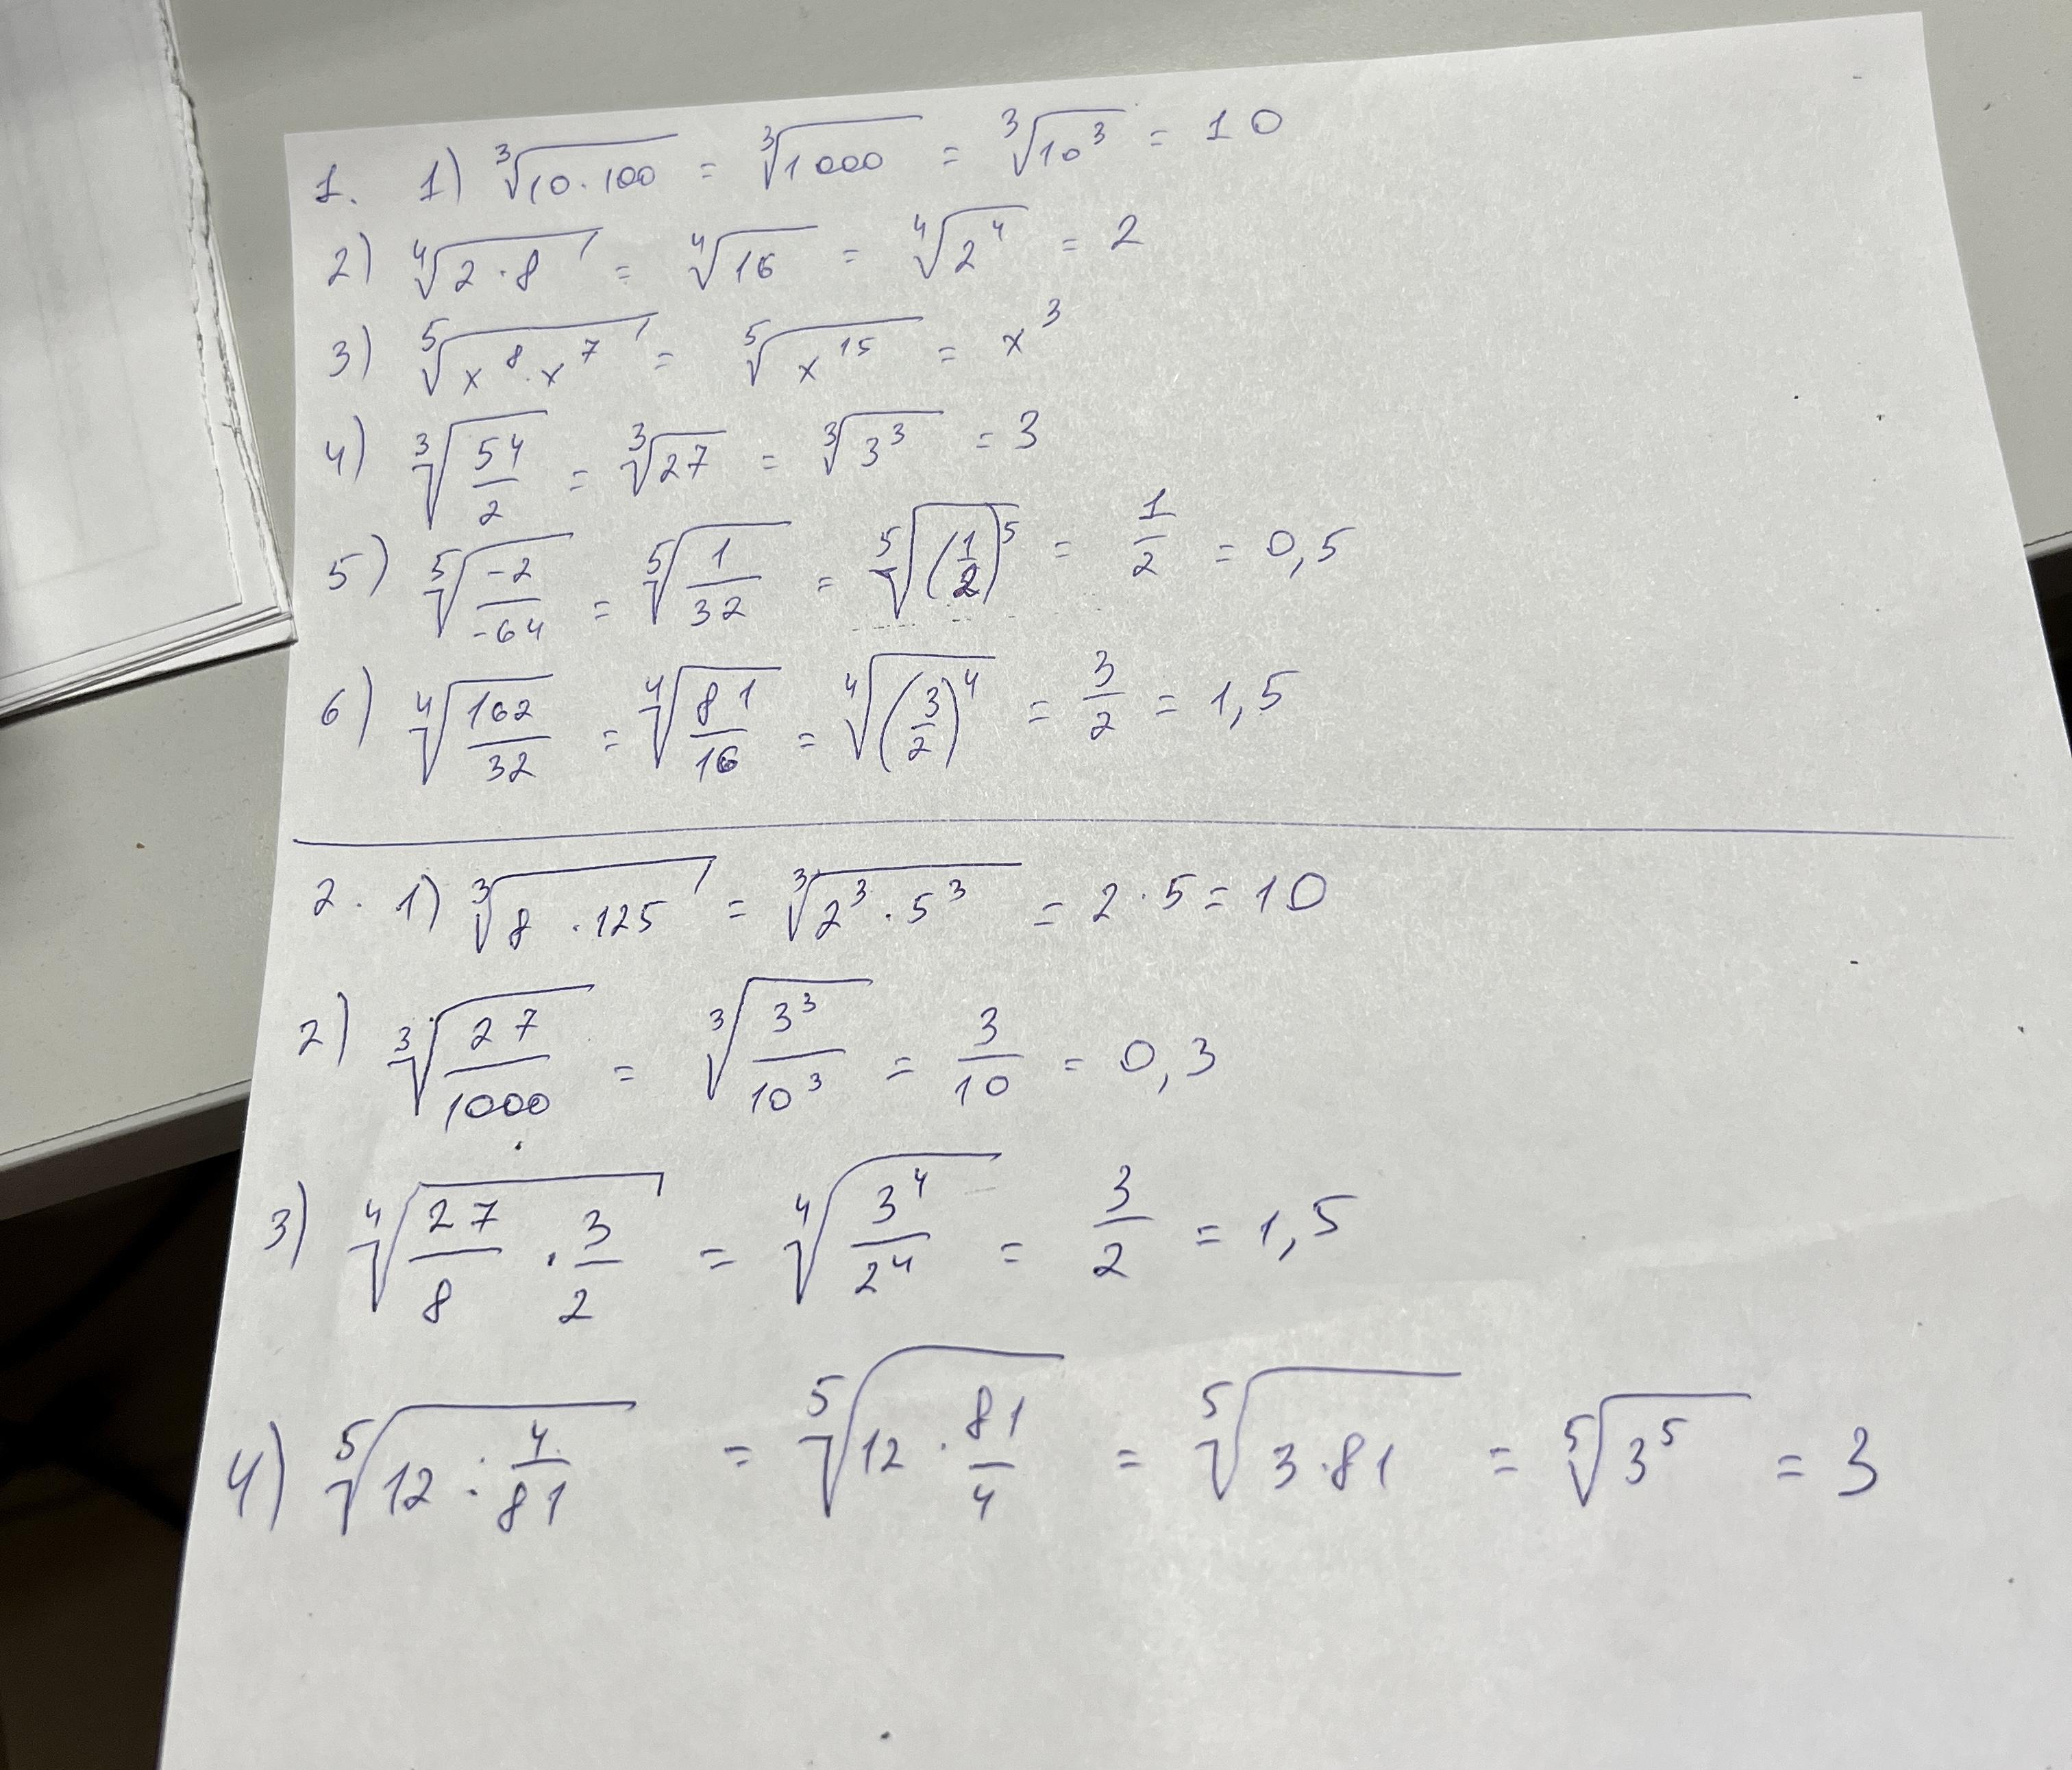 1. 1) ∛(10·100) = ∛1000 = ∛(10³) = 10
2) ∜(2·8) = ∜16 = ∜(2⁴) = 2
3) ⁵√(x⁸·x⁷) = ⁵√(x¹⁵) = x³
4) ∛(54/2) = ∛27 = ∛(3³) = 3
5) ⁵√(-2/-64) = ⁵√(1/32) = ⁵√((1/2)⁵) = 1/2 = 0,5
6) ∜(162/32) = ∜(81/16) = ∜((3/2)⁴) = 3/2 = 1,5
2. 1) ∛(8·125) = ∛(2³·5³) = 2·5 = 10
2) ∛(27/1000) = ∛(3³/10³) = 3/10 = 0,3
3) ∜(27/8 · 3/2) = ∜(3⁴/2⁴) = 3/2 = 1,5
4) ⁵√(12 : 4/81) = ⁵√(12 · 81/4) = ⁵√(3·81) = ⁵√(3⁵) = 3